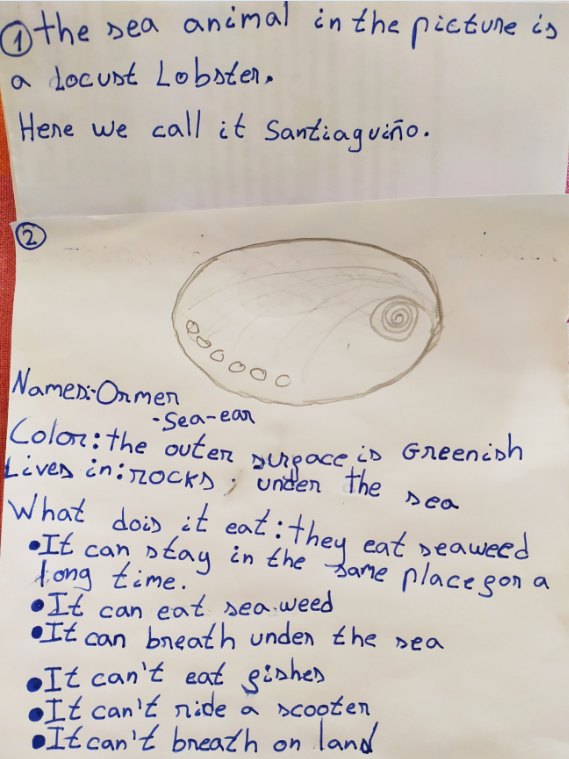 ① the sea animal in the picture is
a Locust Lobster.
Here we call it Santiaguiño.
②
Names:-Ormer
-Sea-ear
Color: the outer surgace is Greenish
Lives in: rocks, under the sea
What dois it eat: they eat seaweed
•It can stay in the same place gor a
long time.
•It can eat sea weed
•It can breath under the sea
•It can't eat gishes
•It can't ride a scooter
•It can't breath on land